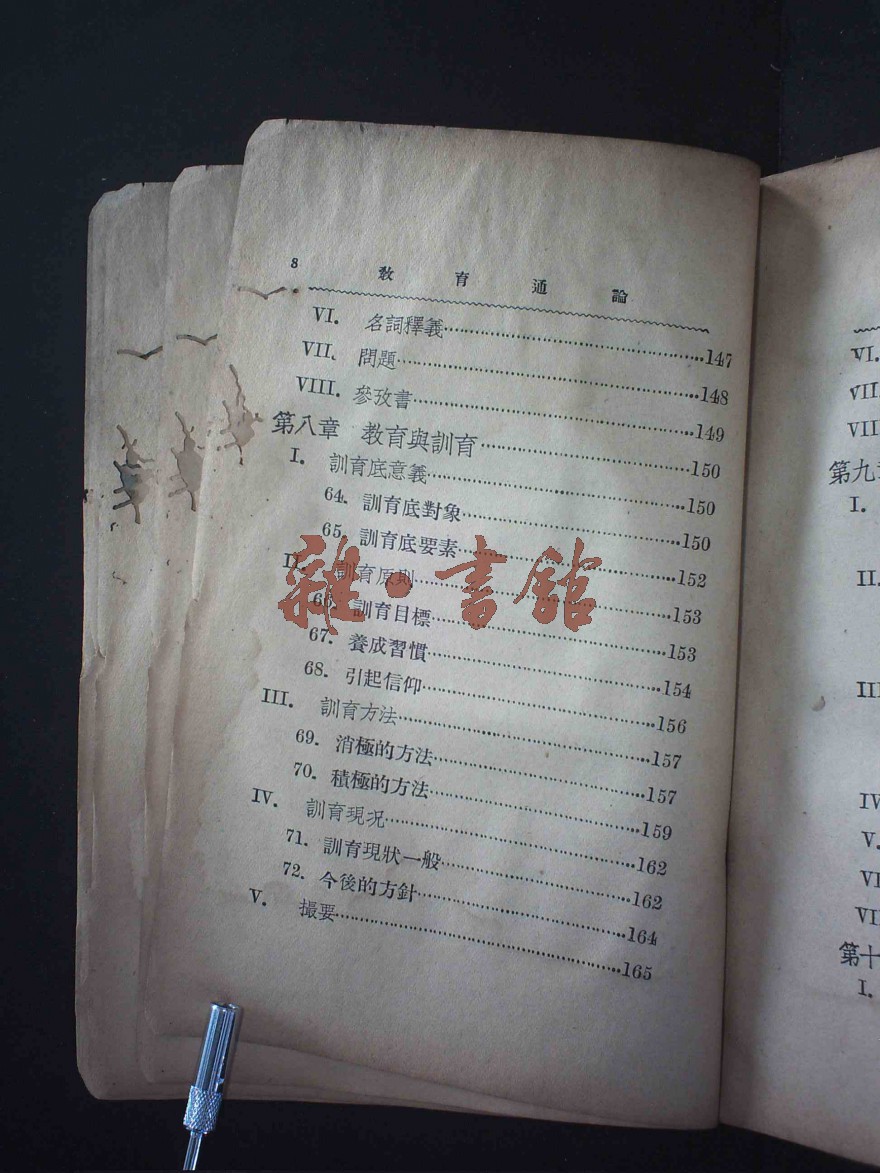 8 教育通論
VI. 名詞釋義……147
VII. 問題……148
VIII. 參攷書……149
第八章 教育與訓育……150
I. 訓育底意義……150
64. 訓育底對象……150
65. 訓育底要素……152
II. 訓育原則……153
66. 訓育目標……153
67. 養成習慣……154
68. 引起信仰……156
III. 訓育方法……157
69. 消極的方法……157
70. 積極的方法……159
IV. 訓育現况……162
71. 訓育現狀一般……162
72. 今後的方針……164
V. 撮要……165
雜·書館
VI.
VII.
VIII
第九章
I.
II.
III
IV
V.
VI
VII
第十
I.